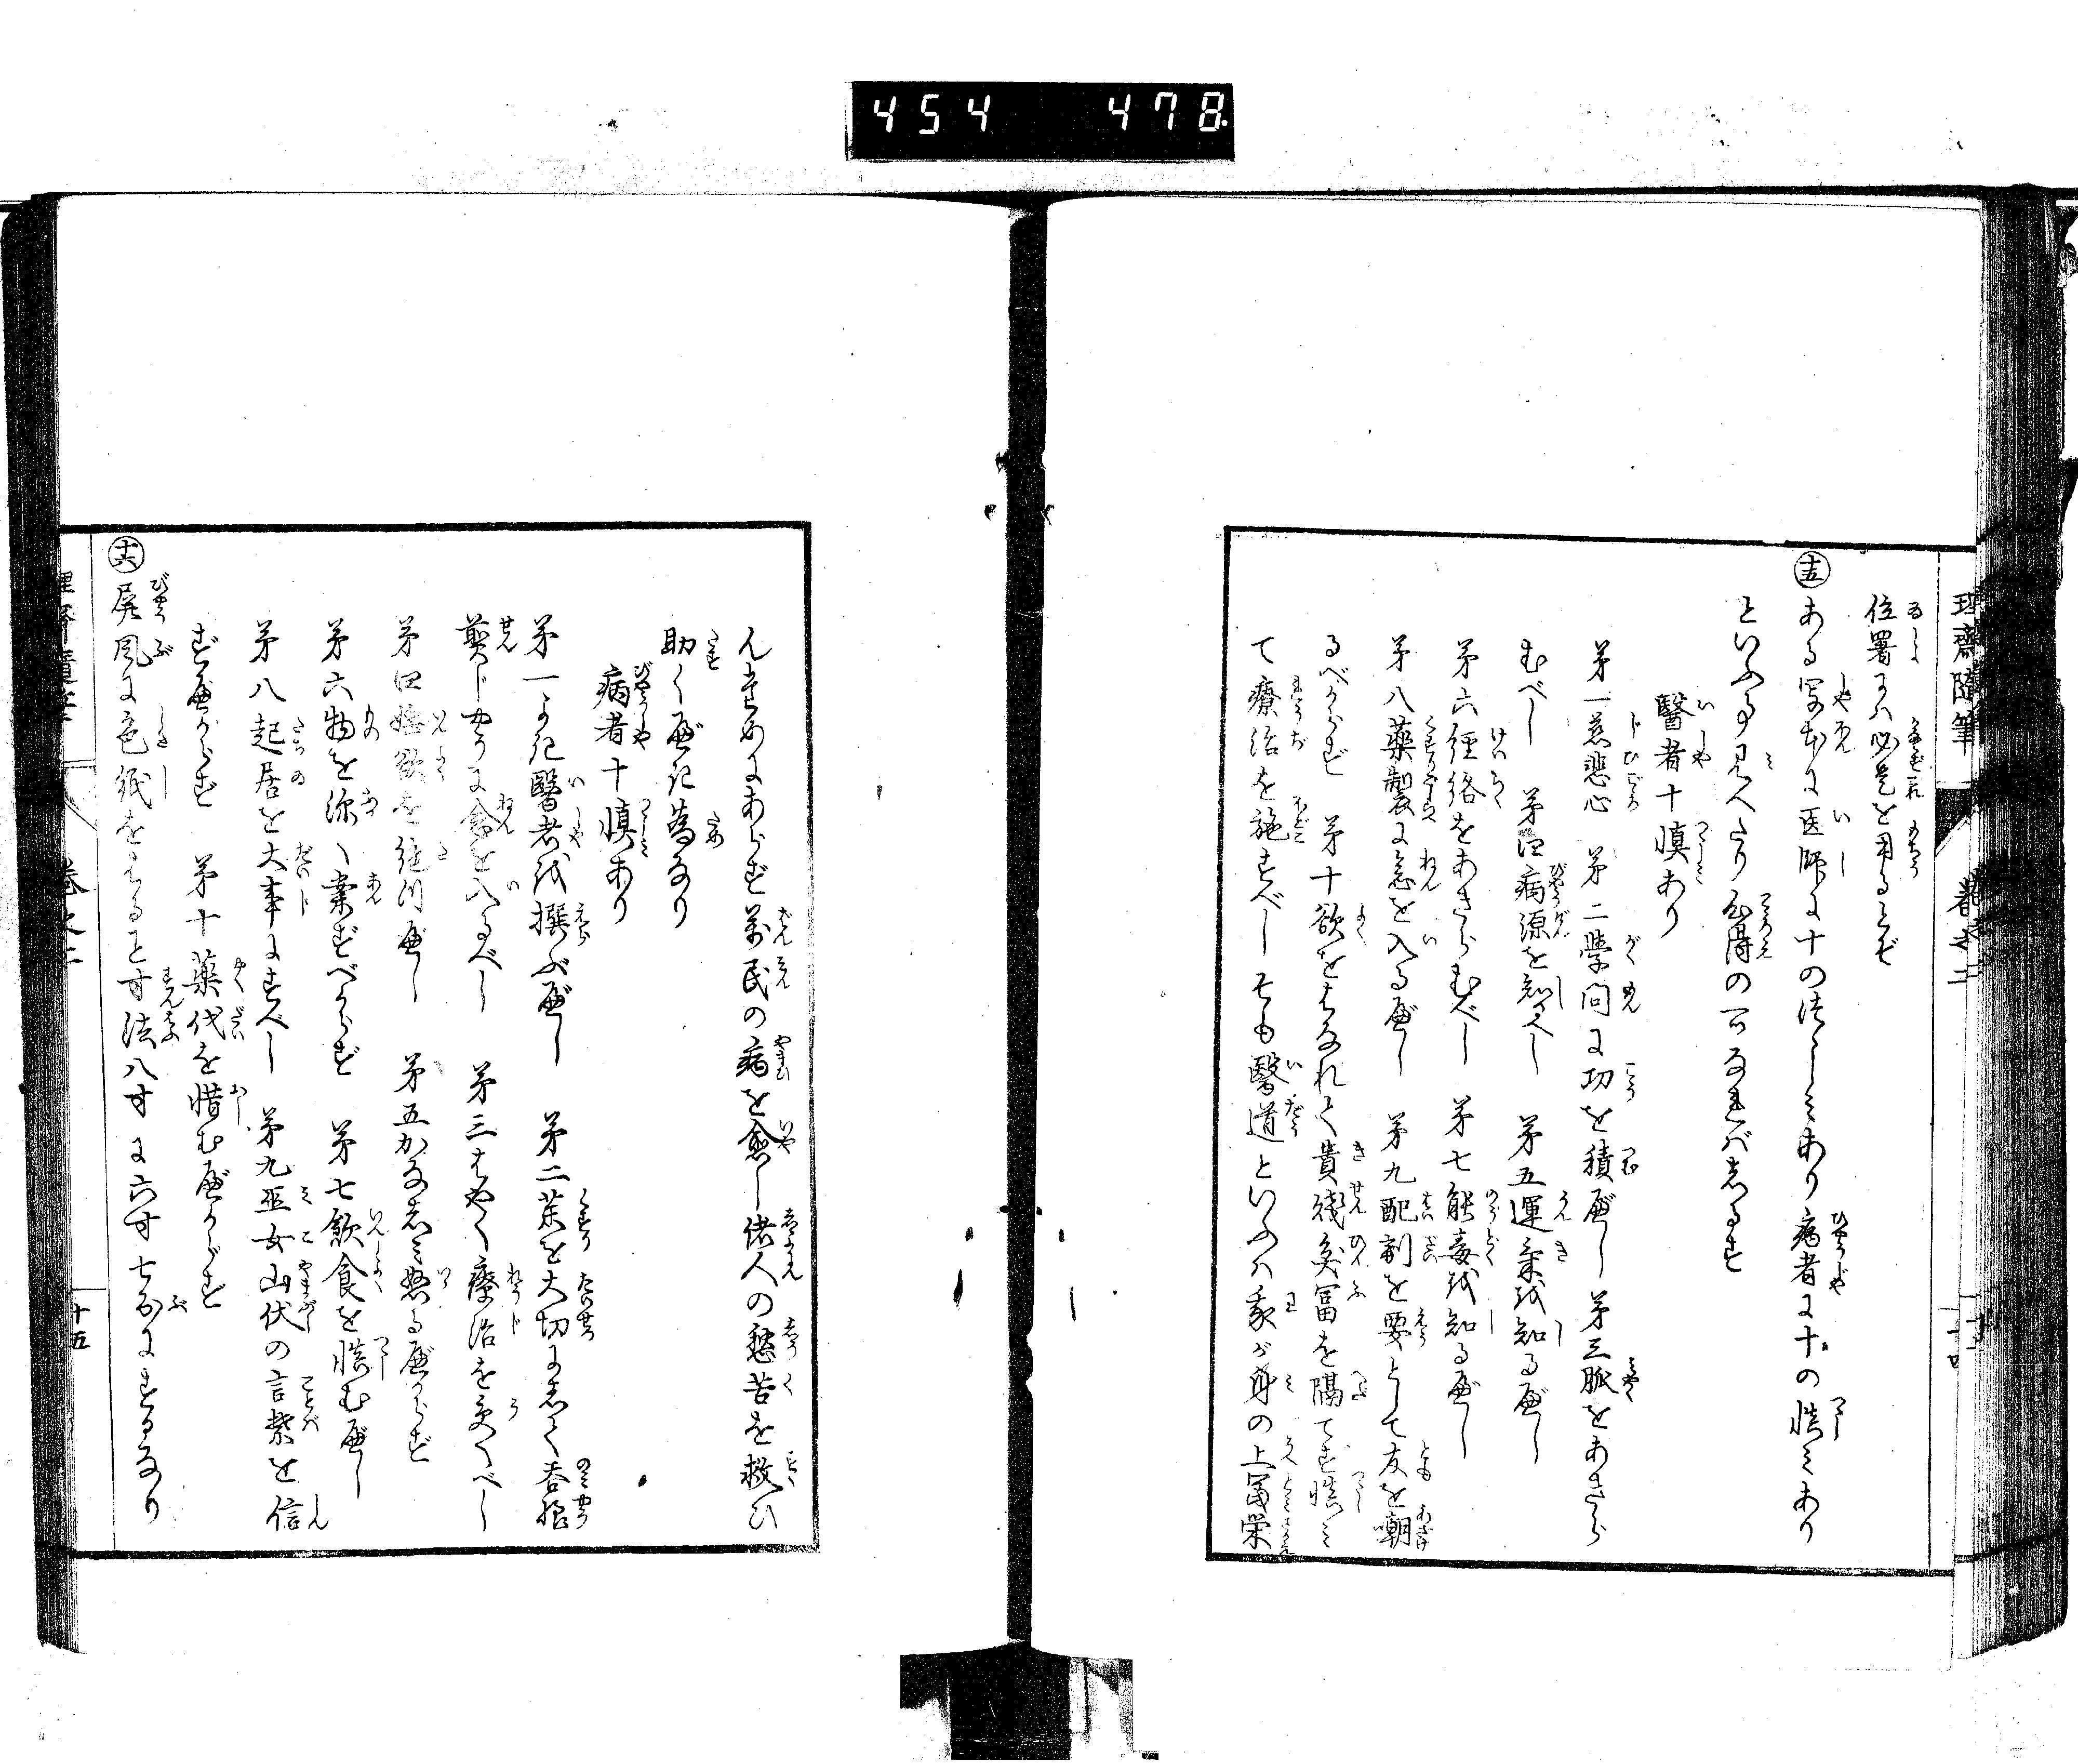 454 478
理齋隨筆 巻之二 十四
位署には必是を用るとぞ
十五 ある写本に医師に十のつゝしみあり病者に十の慎みあり
といふ事見へたり心得の一つなればしるす
醫者十慎あり
第一慈悲心 第二學問に功を積べし 第三脈をあきら
むべし 第四病源を知べし 第五運氣を知るべし
第六經絡をあきらむべし 第七能毒を知るべし
第八藥製に念を入るべし 第九配剤を要として友を嘲
るべからず 第十欲をはなれて貴賤貧富を隔てず慎み
て療治を施すべし そも醫道といふは我が身の上冨栄
んためにあらず萬民の病を愈し諸人の愁苦を救ひ
助くべき為なり
病者十慎あり
第一よき醫者を撰ぶべし 第二薬を大切にして呑様
煎じやうに念を入るべし 第三はやく療治を受くべし
第四婬欲を絶つべし 第五かなしみ怒るべからず
第六物を深く案ずべからず 第七飲食を慎むべし
第八起居を大事にすべし 第九巫女山伏の言葉を信
ずべからず 第十藥代を惜むべからず
十六 屏風に色紙をはること寸法八寸に六寸七分にするなり
十五